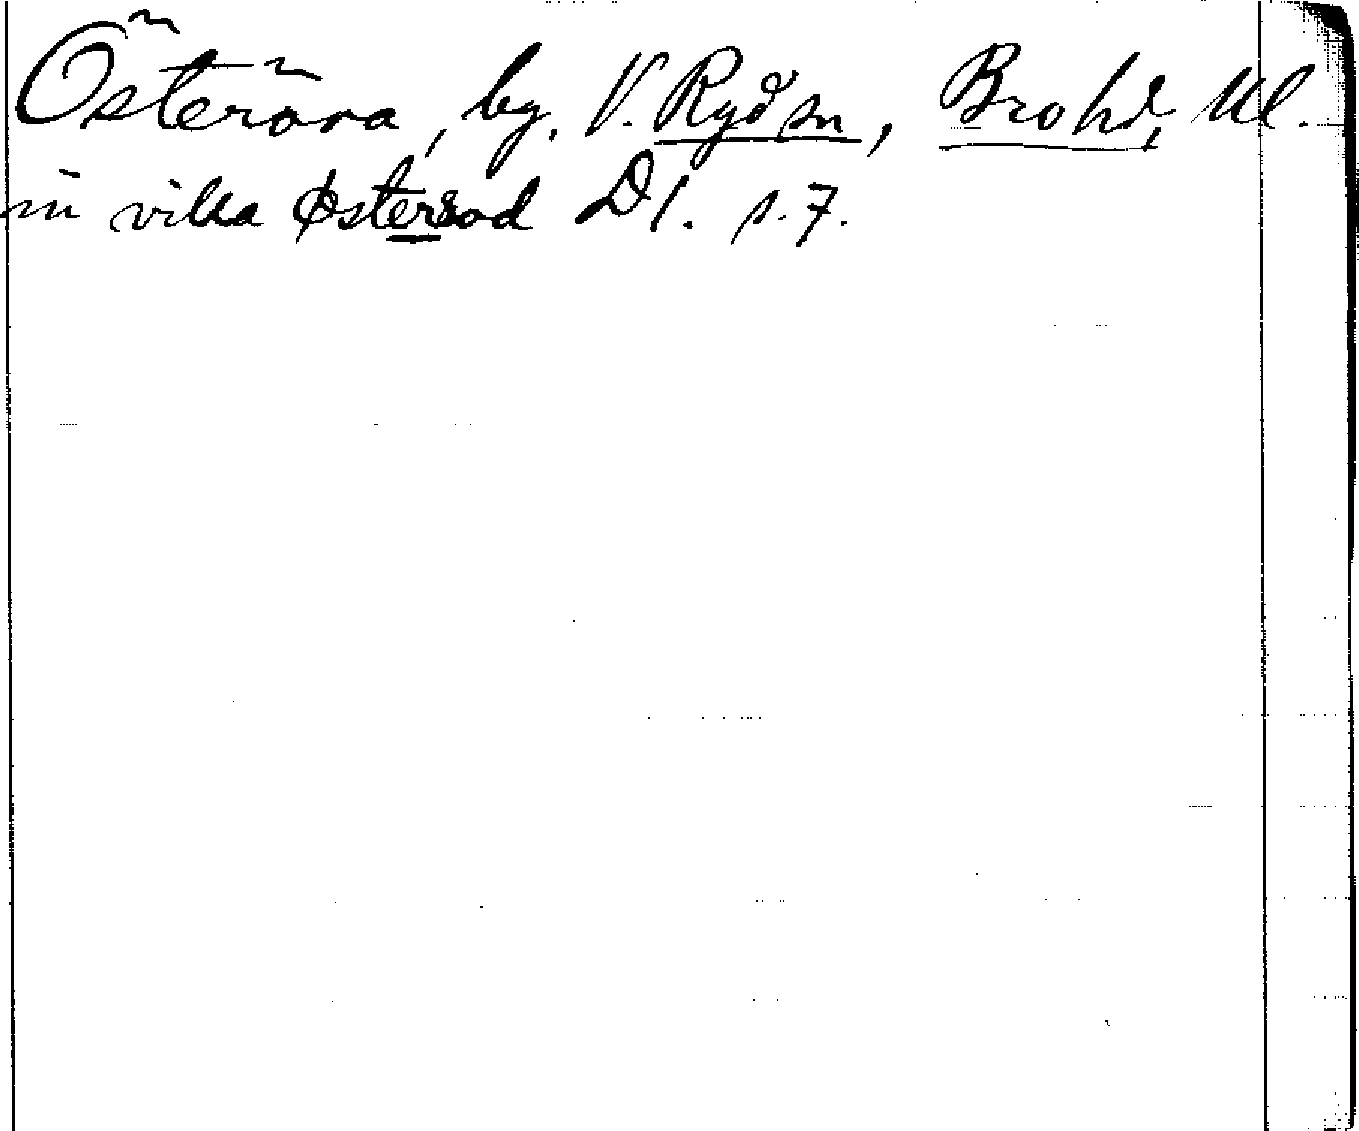 Österöra, by, V. Ryd sn, Brohd, Ul.
in villa Østersod D1. s. 7.